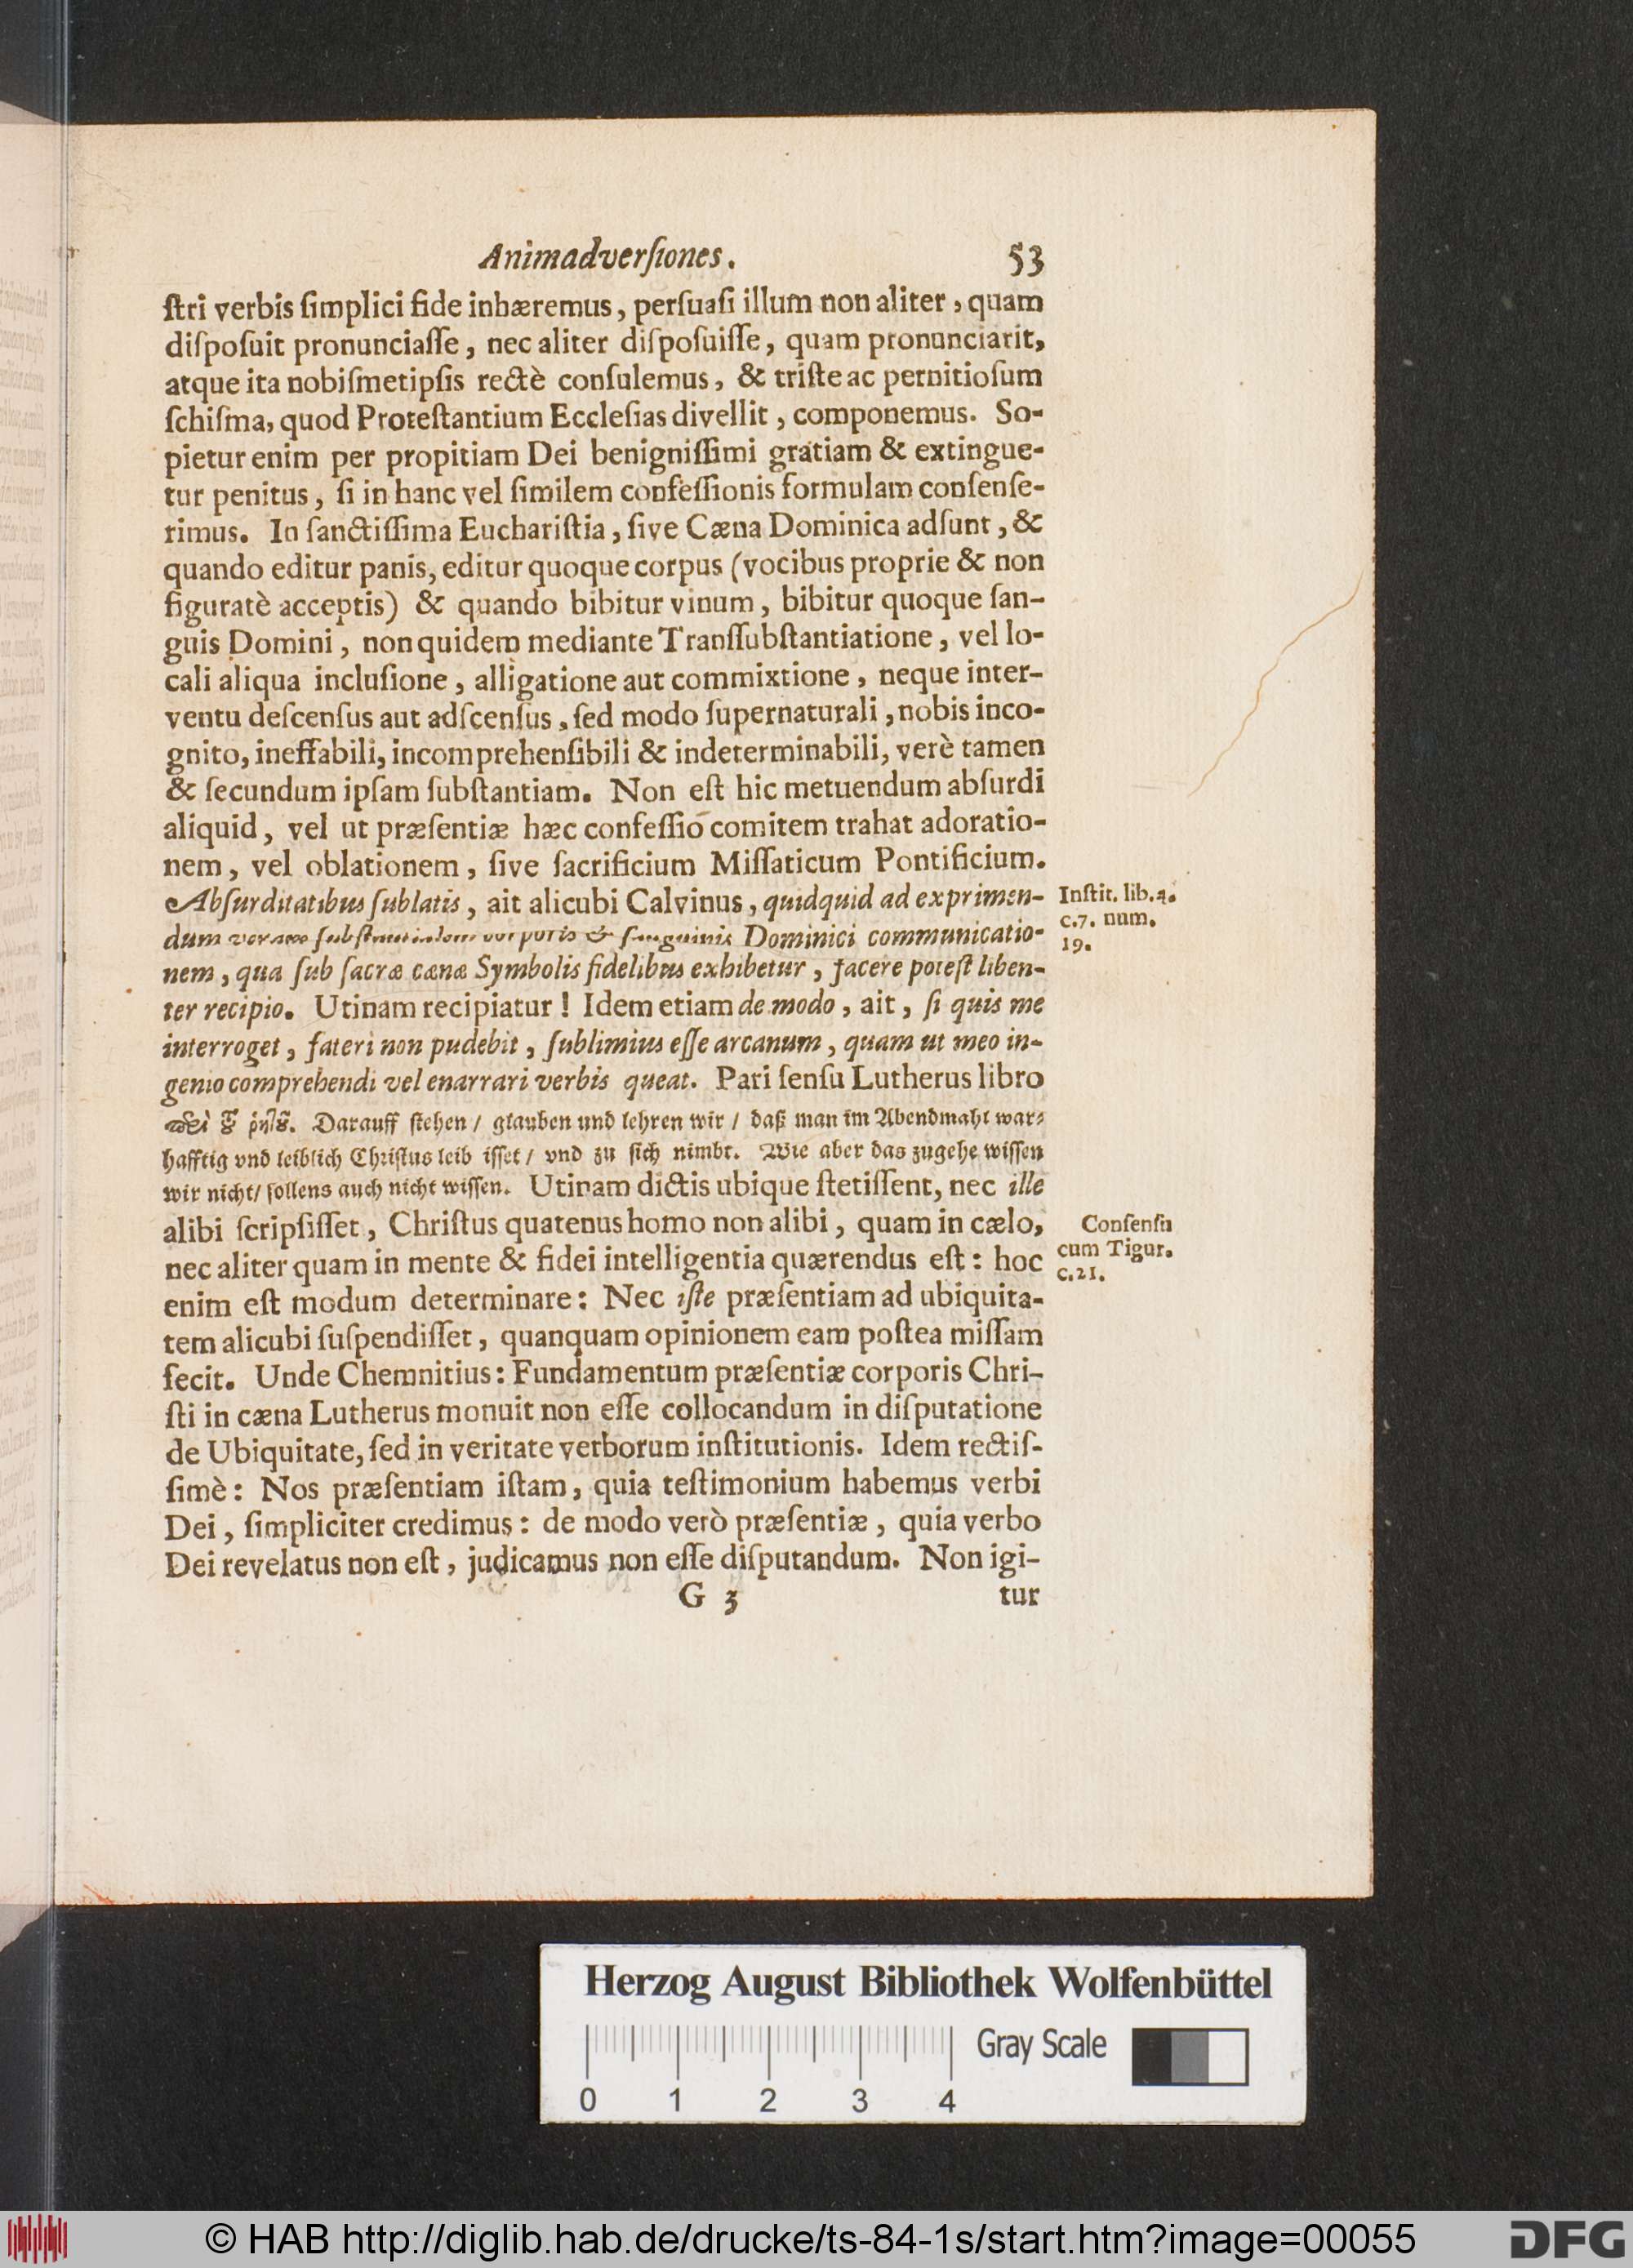 Animadverſiones. 53
ſtri verbis ſimplici fide inhæremus, perſuaſi illum non aliter, quam
diſpoſuit pronunciaſſe, nec aliter diſpoſuiſſe, quam pronunciarit,
atque ita nobiſmetipſis rectè conſulemus, & triſte ac pernitioſum
ſchiſma, quod Proteſtantium Eccleſias divellit, componemus. So-
pietur enim per propitiam Dei benigniſſimi gratiam & extingue-
tur penitus, ſi in hanc vel ſimilem confeſſionis formulam conſenſe-
rimus. In ſanctiſſima Euchariſtia, ſive Cæna Dominica adſunt, &
quando editur panis, editur quoque corpus (vocibus proprie & non
figuratè acceptis) & quando bibitur vinum, bibitur quoque ſan-
guis Domini, non quidem mediante Tranſſubſtantiatione, vel lo-
cali aliqua incluſione, alligatione aut commixtione, neque inter-
ventu deſcenſus aut adſcenſus, ſed modo ſupernaturali, nobis inco-
gnito, ineffabili, incomprehenſibili & indeterminabili, verè tamen
& ſecundum ipſam ſubſtantiam. Non eſt hic metuendum abſurdi
aliquid, vel ut præſentiæ hæc confeſſio comitem trahat adoratio-
nem, vel oblationem, ſive ſacrificium Miſſaticum Pontificium.
Abſurditatibus ſublatis, ait alicubi Calvinus, quidquid ad exprimen-
Inſtit. lib. 4.
c. 7. num.
19.
dum veram ſubſtantialem corporis & ſanguinis Dominici communicatio-
nem, qua ſub ſacræ cænæ Symbolis fidelibus exhibetur, facere poteſt liben-
ter recipio. Utinam recipiatur! Idem etiam de modo, ait, ſi quis me
interroget, fateri non pudebit, ſublimius eſſe arcanum, quam ut meo in-
genio comprehendi vel enarrari verbis queat. Pari ſenſu Lutherus libro
Darauff ſtehen / glauben und lehren wir / daß man im Abendmahl war⸗
hafftig vnd leiblich Chriſtus leib iſſet / vnd zu ſich nimbt. Wie aber das zugehe wiſſen
wir nicht / ſollens auch nicht wiſſen. Utinam dictis ubique ſtetiſſent, nec ille
alibi ſcripſiſſet, Chriſtus quatenus homo non alibi, quam in cælo,
Conſenſu
cum Tigur.
c. 21.
nec aliter quam in mente & fidei intelligentia quærendus eſt: hoc
enim eſt modum determinare: Nec iſte præſentiam ad ubiquita-
tem alicubi ſuſpendiſſet, quanquam opinionem eam poſtea miſſam
fecit. Unde Chemnitius: Fundamentum præſentiæ corporis Chri-
ſti in cæna Lutherus monuit non eſſe collocandum in diſputatione
de Ubiquitate, ſed in veritate verborum inſtitutionis. Idem rectiſ-
ſimè: Nos præſentiam iſtam, quia teſtimonium habemus verbi
Dei, ſimpliciter credimus: de modo verò præſentiæ, quia verbo
Dei revelatus non eſt, judicamus non eſſe diſputandum. Non igi-
G 3 tur
Herzog August Bibliothek Wolfenbüttel
Gray Scale
0 1 2 3 4
© HAB http://diglib.hab.de/drucke/ts-84-1s/start.htm?image=00055
DFG